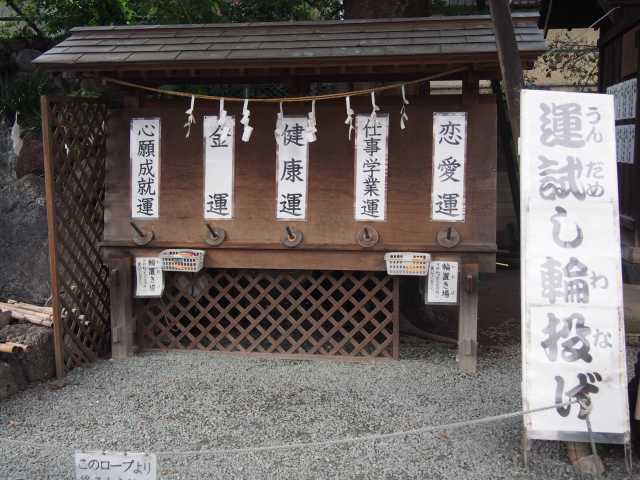 心願成就運
金運
健康運
仕事学業運
恋愛運
輪置き場
輪置き場
運試し輪投げ
うんだめ
わな
このロープより